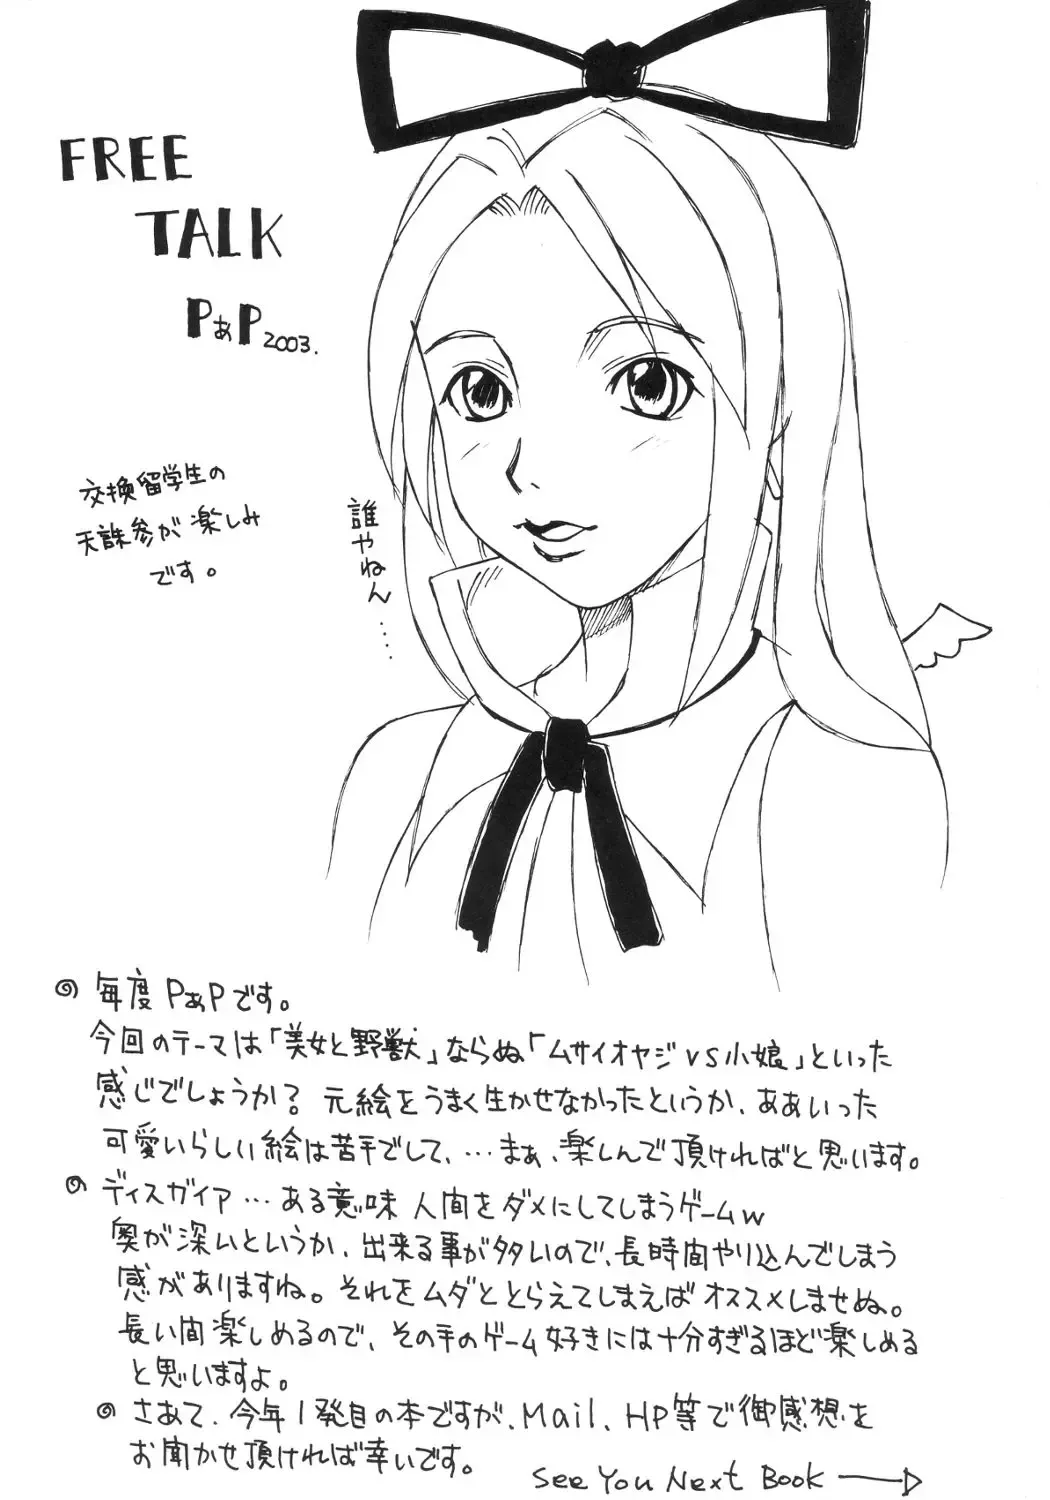 FREE
TALK
PぁP 2003.
交換留学生の
天誅参が楽しみ
です。
誰やねん……
◎ 毎度PぁPです。
今回のテーマは「美女と野獣」ならぬ「ムサイオヤジvs小娘」といった
感じでしょうか? 元絵をうまく生かせなかったというか、ああいった
可愛いらしい絵は苦手でして、…まぁ、楽しんで頂ければと思います。
◎ ディスガイア…ある意味 人間をダメにしてしまうゲームw
奥が深いというか、出来る事が多いので、長時間やり込んでしまう
感がありますね。それをムダととらえてしまえばオススメしませぬ。
長い間楽しめるので、その手のゲーム好きには十分すぎるほど楽しめる
と思いますよ。
◎ さあて、今年1発目の本ですが、Mail、HP等で御感想を
お聞かせ頂ければ幸いです。
See You Next Book